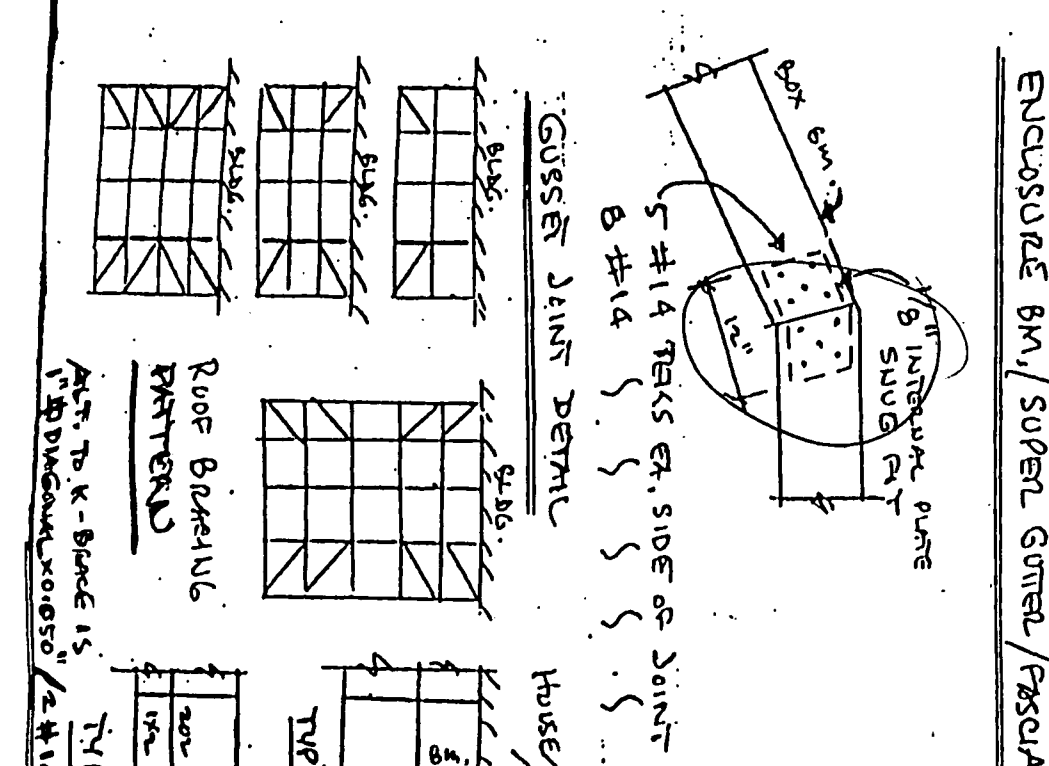 ENCLOSURE BM./SUPER GUTTER/FASCIA
BOX BM.
1/8" INTERNAL PLATE
SNUG FIT
12"
5 #14 TEKS EA. SIDE OF JOINT
8 #14
GUSSET JOINT DETAIL
BLDG.
BLDG.
BLDG.
BLDG.
ROOF BRACING
PATTERN
ALT. TO K-BRACE IS
1" DIAGONAL x 0.050"/2 #1
HOUSE/
BM.
TYP
2x2
1x2
TY